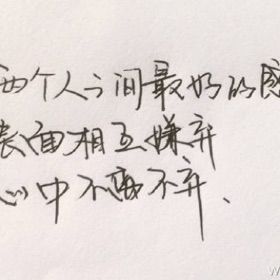 两个人之间最好的感
表面相互嫌弃
心中不离不弃.